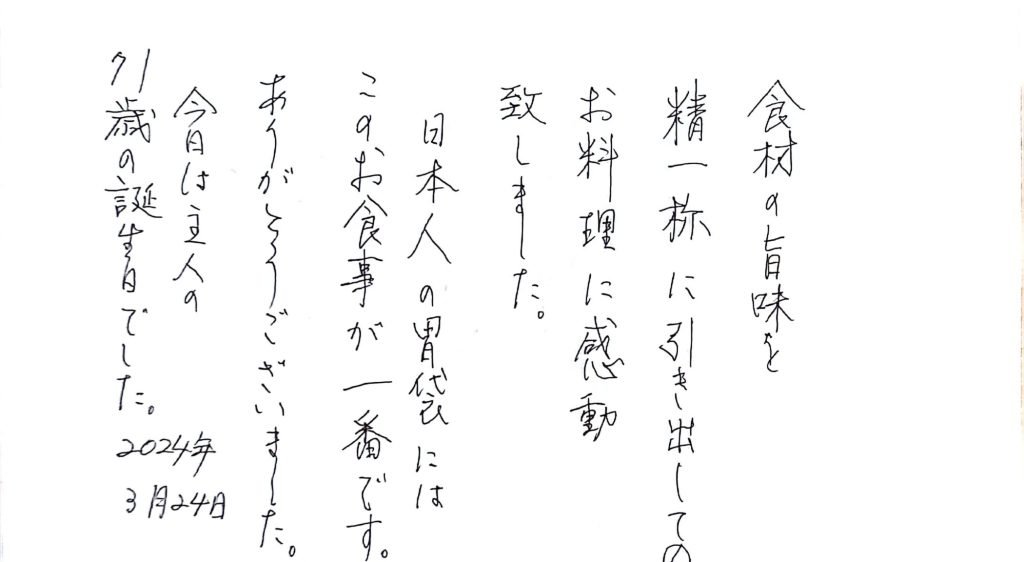 食材の旨味を
精一杯に引き出しての
お料理に感動
致しました。
日本人の胃袋には
このお食事が一番です。
ありがとうございました。
今日は主人の
71歳の誕生日でした。
2024年
3月24日